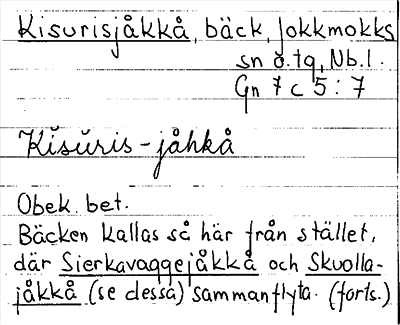 Kisurisjåkkå, bäck, Jokkmokks
sn ö.tq, Nb.l.
Gn 7 c 5:7
Kĭsŭris-jåhkå
Obek. bet.
Bäcken kallas så här från stället,
där Sierkavaggejåkkå och Skuolla-
jåkkå (se dessa) sammanflyta. (forts.)